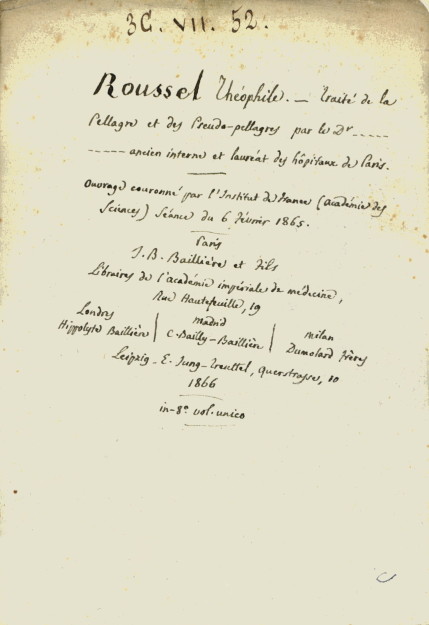 3G. VII. 52.
Roussel Théophile. — Traité de la
Pellagre et des Pseudo-pellagres par le Dr -----
----- ancien interne et lauréat des hôpitaux de Paris.
Ouvrage couronné par l'Institut de France (académie des
Sciences) Séance du 6 Février 1865.
Paris
J. B. Baillière et Fils
Libraires de l'académie impériale de médecine,
Rue Hautefeuille, 19
Londres | Madrid | Milan
Hippolyte Baillière | C. Bailly-Baillière | Dumolard Frères
Leipzig - E. Jung-Treuttel, Querstrasse, 10
1866
in-8º vol. unico